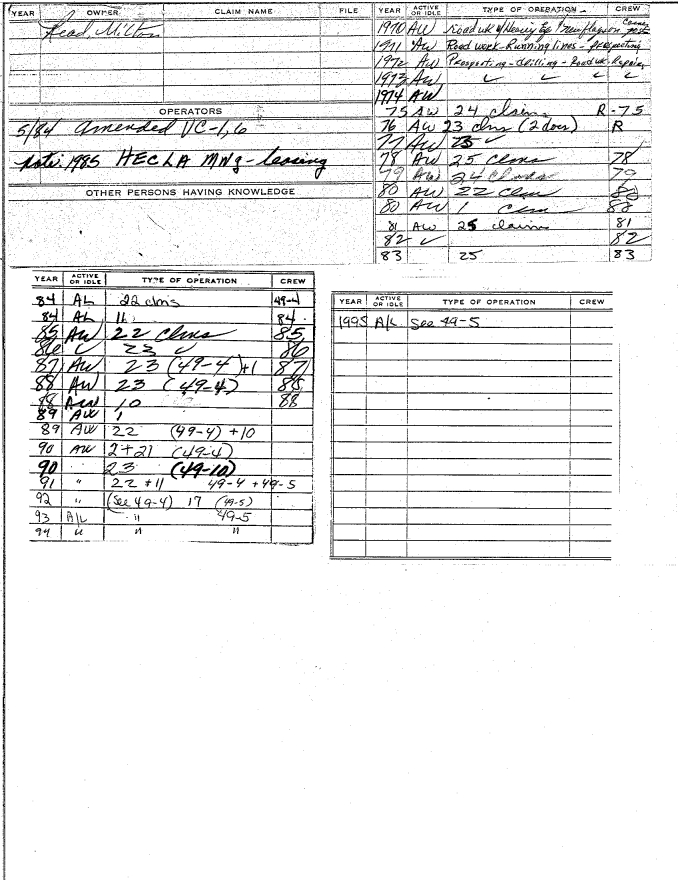 YEAR OWNER CLAIM NAME FILE
Read, Milton
OPERATORS
5/84 Amended VC-1,6
note: 1985 HECLA MNG - leasing
OTHER PERSONS HAVING KNOWLEDGE
YEAR ACTIVE OR IDLE TYPE OF OPERATION CREW
1970 AW road wk w/ Heavy Eq
1971 AW Road work - Running lines - prospecting
1972 AW Prospecting - drilling - Road wk - Repairing
1973 AW ✓ ✓ ✓ ✓
1974 AW
75 AW 24 claims R-75
76 AW 23 clms (2 docs) R
77 AW 25 ✓
78 AW 25 Clms 78
79 AW 24 Clms 79
80 AW 22 Clms
80 AW 1 Clm
81 AW 25 claims 81
82 ✓ 82
83 25 83
YEAR ACTIVE OR IDLE TYPE OF OPERATION CREW
84 AL 22 clms 49-4
84 AL 84
85 AW 22 Clms 85
86 ✓ 23 ✓ 86
87 AW 23 (49-4)+1 87
88 AW 23 (49-4) 88
88 AW 10 88
89 AW 1
89 AW 22 (49-4) +10
90 AW 2+21 (49-4)
90 23 (49-10)
91 " 22 +11 49-4 +49-5
92 " (See 49-4) 17 (49-5)
93 A/L " 49-5
94 " " "
YEAR ACTIVE OR IDLE TYPE OF OPERATION CREW
1995 A/L See 49-5